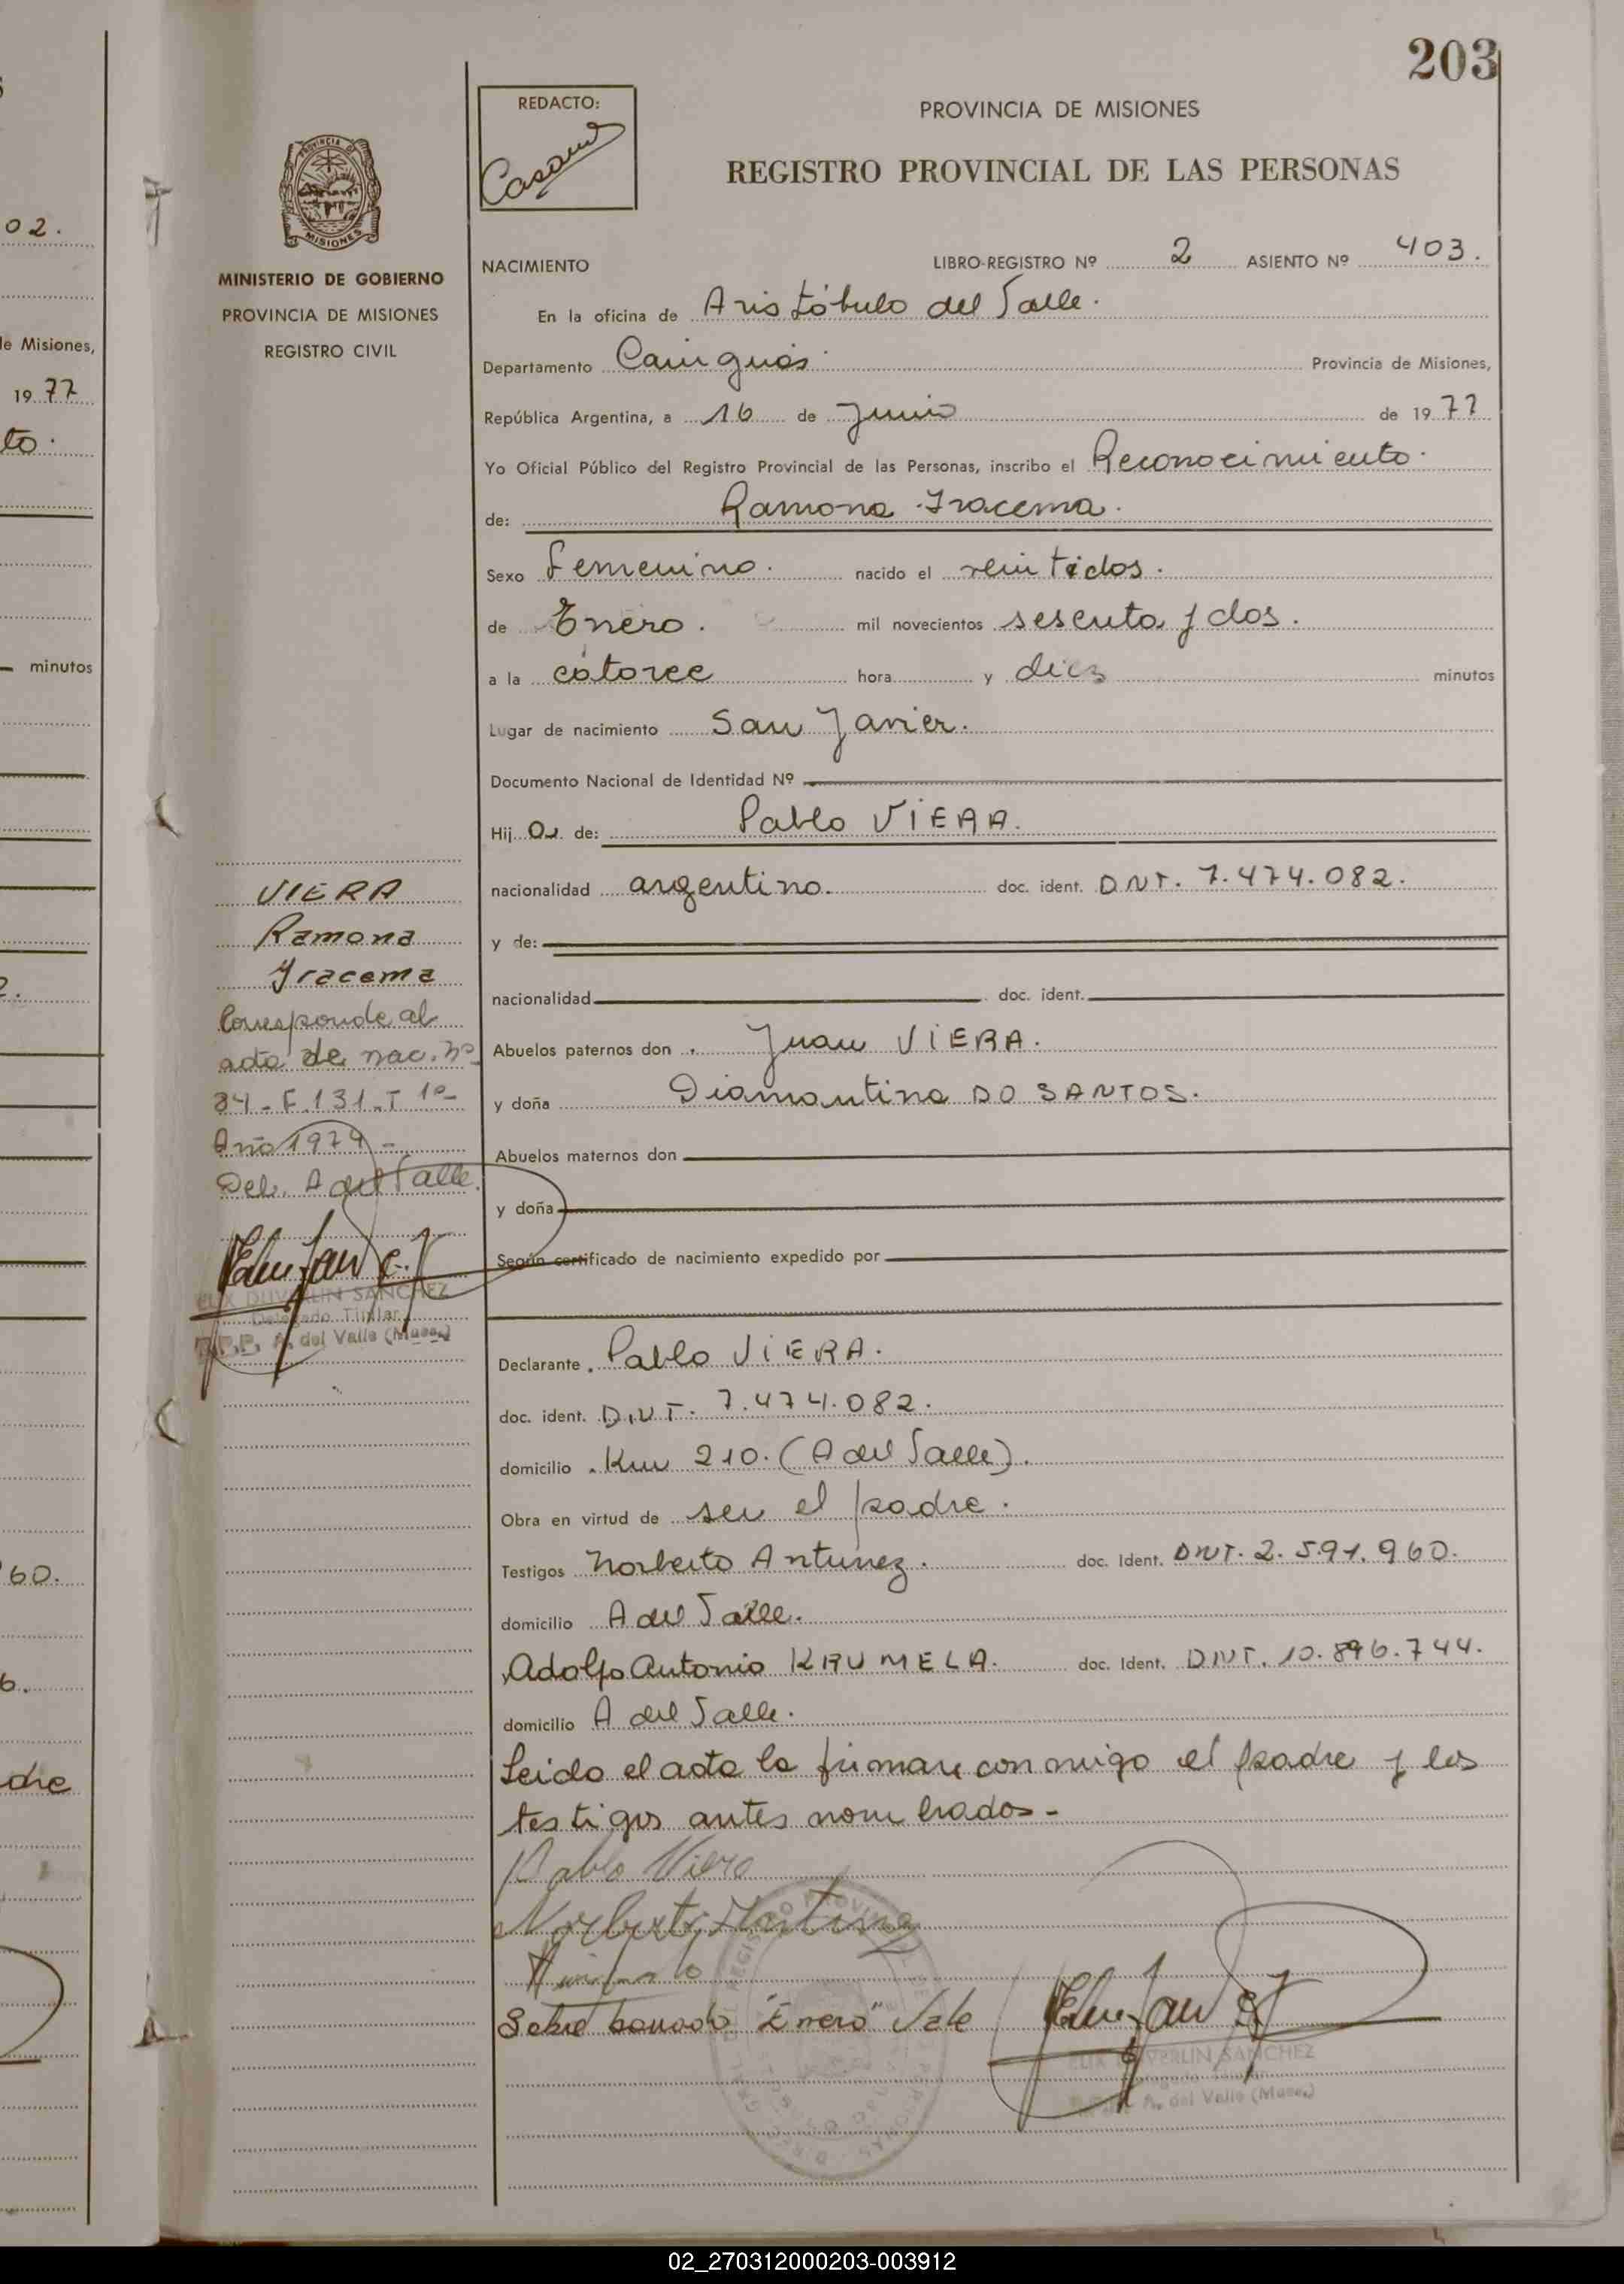 203
REDACTO:
PROVINCIA DE MISIONES
REGISTRO PROVINCIAL DE LAS PERSONAS
PROVINCIA DE MISIONES
MINISTERIO DE GOBIERNO
PROVINCIA DE MISIONES
REGISTRO CIVIL
NACIMIENTO LIBRO-REGISTRO Nº 2 ASIENTO Nº 403.
En la oficina de Aristóbulo del Valle.
Departamento Cainguás. Provincia de Misiones,
República Argentina, a 16 de Junio de 1977
Yo Oficial Público del Registro Provincial de las Personas, inscribo el Reconocimiento.
de: Ramona Iracema.
Sexo Femenino. nacido el veintidos.
de Enero. mil novecientos sesenta y dos.
a la catorce hora y diez minutos
Lugar de nacimiento San Javier.
Documento Nacional de Identidad Nº
Hija de: Pablo VIERA.
nacionalidad argentino. doc. ident. DNI. 7.474.082.
y de:
nacionalidad doc. ident.
Abuelos paternos don Juan VIERA.
y doña Diamantina DO SANTOS.
Abuelos maternos don
y doña
Según certificado de nacimiento expedido por
VIERA
Ramona
Yracema
Corresponde al
acta de nac. nº
84-F.131.T 1º-
Año 1974-
Del. A del Valle.
ELIX DUVERLIN SANCHEZ
Delegado Titular
A. del Valle (Mnes.)
Declarante Pablo VIERA.
doc. ident. D.N.I. 7.474.082.
domicilio Km 210. (A del Valle).
Obra en virtud de ser el padre.
Testigos Norberto Antunez. doc. Ident. DNI. 2.591.960.
domicilio A del Valle.
Adolfo Antonio KRUMELA. doc. Ident. DNI. 10.896.744.
domicilio A del Valle.
Leido el acta la firman conmigo el padre y los
testigos antes nombrados-
Pablo Viera
Norberto Antunez
Sobre borrado "Enero" Vale
ELIX DUVERLIN SANCHEZ
A. del Valle (Mnes.)
02.
de Misiones,
1977
to.
minutos
60.
6.
dre
02_270312000203-003912